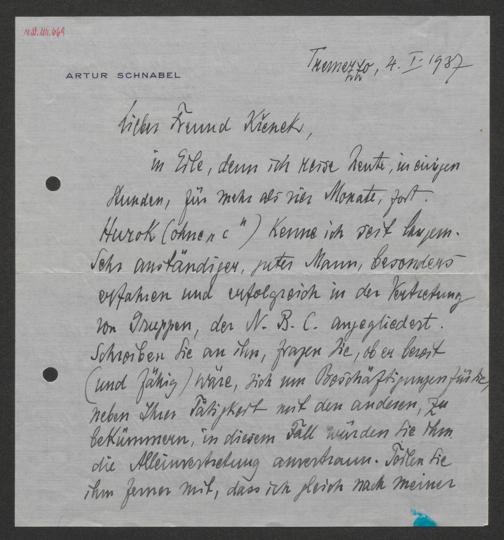 ARTUR SCHNABEL
Tremezzo, 4. I. 1937
Lieber Freund Křenek,
in Eile, denn ich reise heute, in einigen
Stunden, für mehr als vier Monate, fort.
Hurok (ohne „c") kenne ich seit langem.
Sehr anständiger, guter Mann, besonders
erfahren und erfolgreich in der Vertretung
von Gruppen, der N. B. C. angegliedert.
Schreiben Sie an ihn, fragen Sie, ob er bereit
(und fähig) wäre, sich um Beschäftigungen für Sie,
neben Ihrer Tätigkeit mit den anderen, zu
bekümmern, in diesem Fall würden Sie ihm
die Alleinvertretung anvertraun. Teilen Sie
ihm ferner mit, dass ich gleich nach meiner